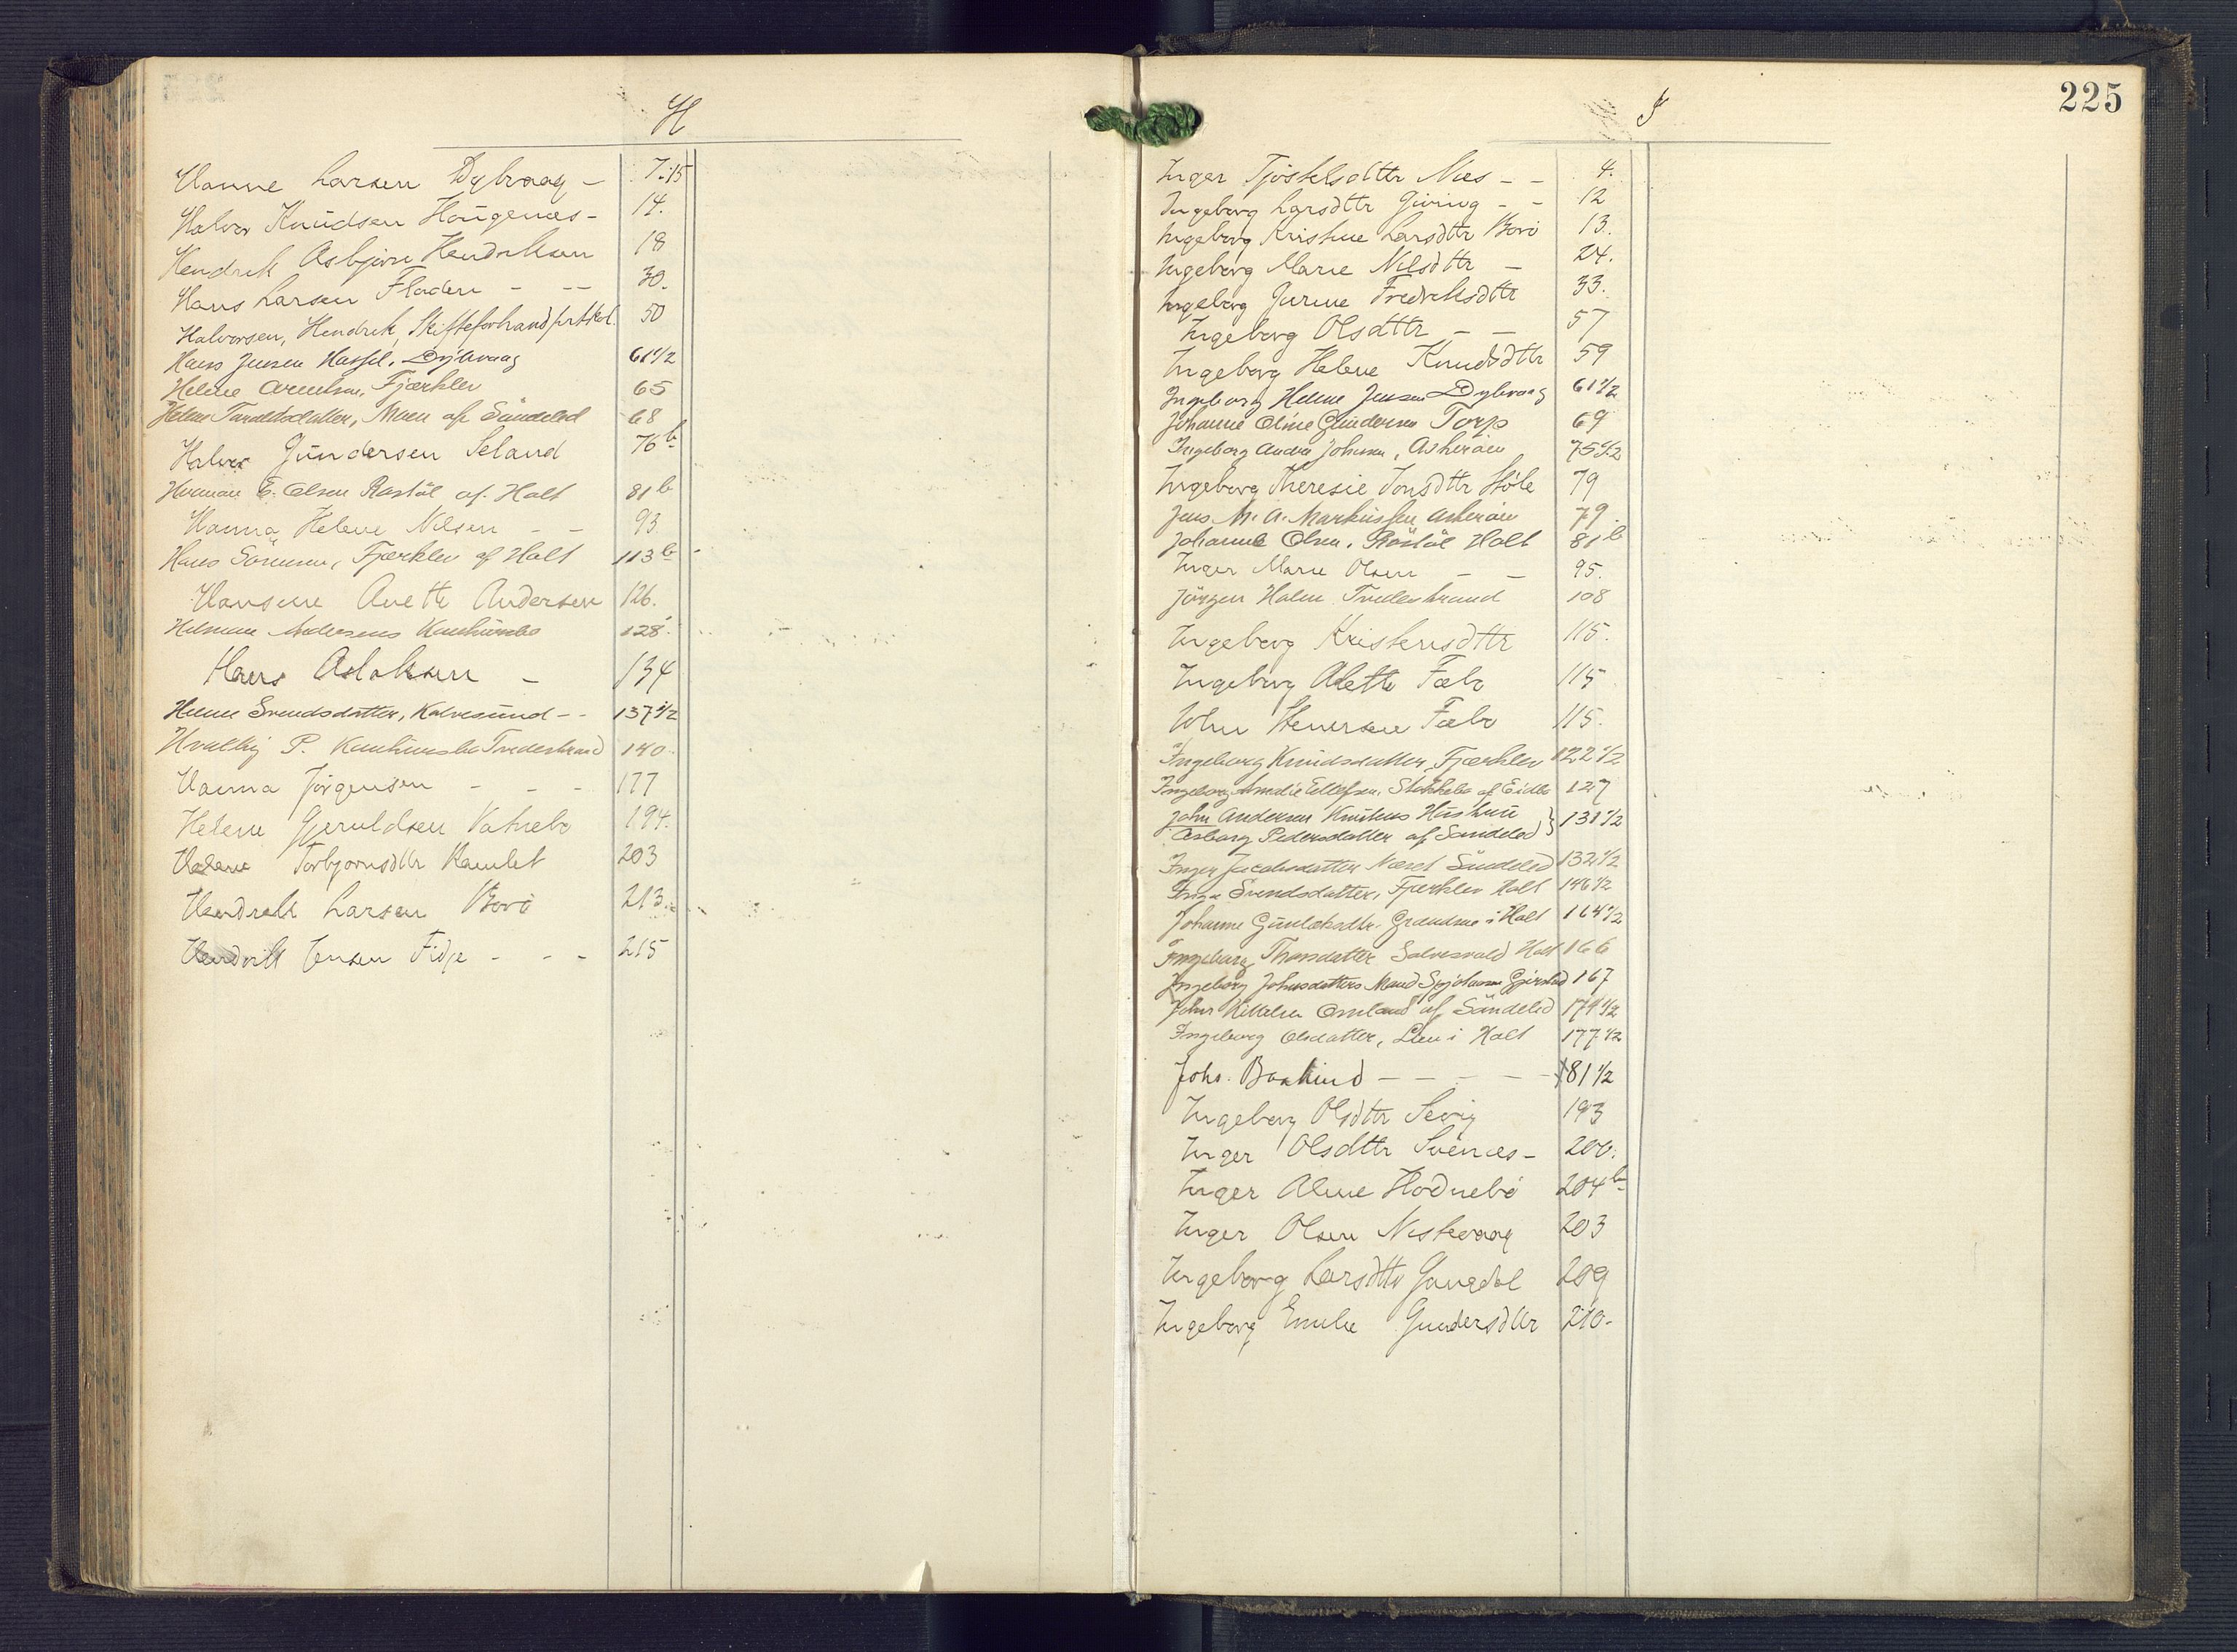 H
Hanne Larsen Dybvaag – 7.15
Halvor Knudsen Haugenæs – 14.
Hendrik Asbjørn Hendriksen 18
Hans Larsen Fladen - -- 30.
Halvorsen, Hendrik, Skifteforhandl.prtkol. 50
Hans Jensen Hassel, Dybvaag 61 1/2
Helene Arentsen, Fjærklev 65
Helene Taraldsdatter, Moen af Søndeled 68
Halvor Gundersen Seland 76b
Herman E. Olsen Rostøl af Holt 81b
Hanna Helene Nilsen - - 93
Hans Sörensen, Fjærklev af Holt 113b
Hansine Anette Andersen 126.
Helmine Andersens 128.
Hans Aslaksen – 134
Helene Svendsdatter, Kalvesund -- 137 1/2
P. Tvedestrand 140
Hanna Jörgensen - - - 177
Helene Gjeruldsen Vatnebo 194.
Helene Torbjørnsdttr Ramlet 203
Hendrik Larsen Borö 213.
Hendrik Jensen Fidje - - - 215
225
I
Inger Tjöstelsdttr Næs - - 4.
Ingeborg Larsdttr Giving - - 12
Ingeborg Kristine Larsdttr Borö 13.
Ingeborg Marie Nilsdttr – 24.
Ingeborg Jurine Fredriksdttr 33.
Ingeborg Olsdttr – – 57
Ingeborg Helene Knudsdttr 59
Ingeborg Helene Jensen Dybvaag 61 1/2
Johanne Oline Gundersen Torp 69
Ingeborg Andrea Johnsen, Askeröen 75 1/2
Ingeborg Theresie Tonsdttr Stöle 79
Jens M. A. Markussen Askeröen 79.
Johanne Olsen, Röstöl Holt 81b
Inger Marie Olsen – – 95.
Jörgen Holm Tvedestrand 108
Ingeborg Kristensdttr 115.
Ingeborg Alette Fælr 115
John Stenersen Fælr 115.
Ingeborg Knudsdatter, Fjærklev 122 1/2
Ingeborg Amalie Ellefsen, af Eidbo 127
John Andersen Hustru
Aasborg Pedersdatter af Søndeled } 131 1/2
Inger Jacobsdatter Næset Søndeled 132 1/2
Inger Svendsdatter, Fjærklev Holt 146 1/2
Johanne Gunlaksdtr. i Holt 164 1/2
Ingeborg Thorsdatter Salvesvold Holt 166
Ingeborg Johnsdatters Mand Gjerstad 167
John Kittelsen Omland af Søndeled 174 1/2
Ingeborg Olsdatter, Lien i Holt 177 1/2
Johs. Baklund – – - – 181 1/2
Ingeborg Olsdttr Sevig 193
Inger Olsdttr Svenæs – 200.
Inger Aline Hödnebö 204b
Inger Olsen Neskevaag 203
Ingeborg Larsdttr Gangdal 209
Ingeborg Emilie Gundersdttr 210.